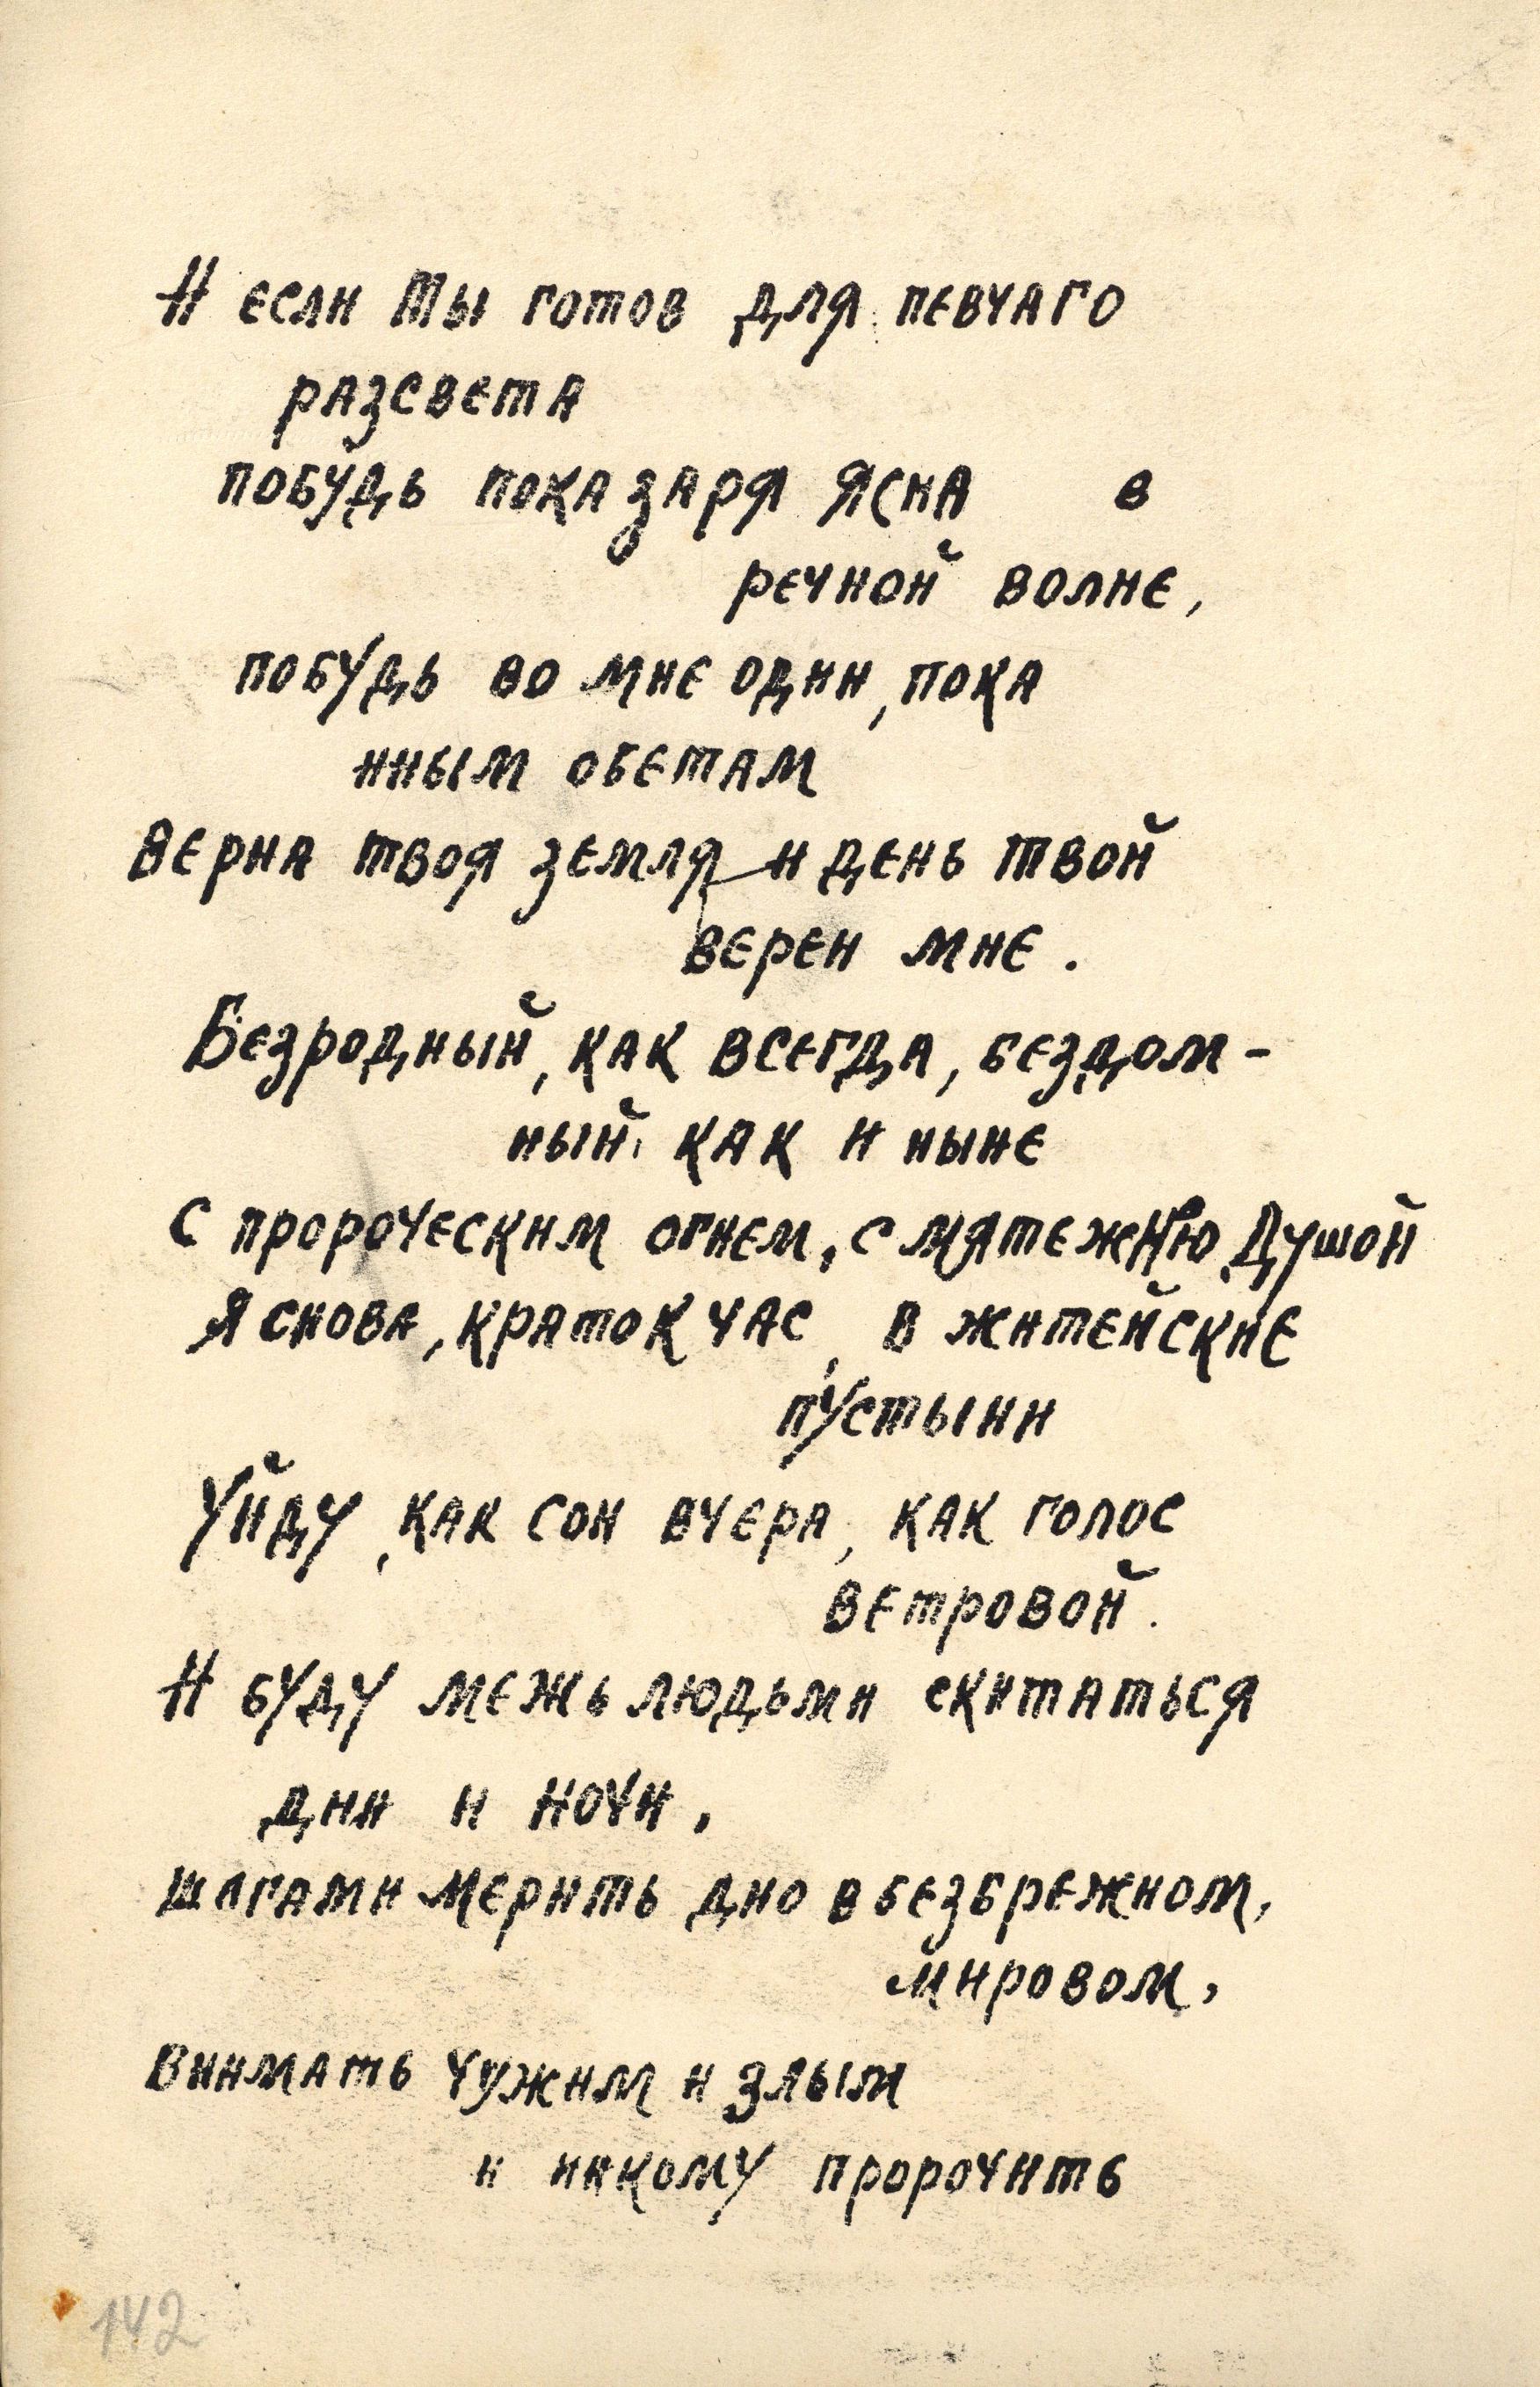 И если ты готов для певчаго
разсвета
побудь пока заря ясна в
речной волне,
побудь во мне один, пока
иным обетам
верна твоя земля и день твой
верен мне.
Безродный, как всегда, бездом-
ный как и ныне
С пророческим огнем, с мятежню душой
Я снова, краток час, в житейские
пустыни
Уйду, как сон вчера, как голос
ветровой.
И буду межь людьми скитаться
дни и ночи,
шагами мерить дно в безбрежном,
мировом,
внимать чужим и злым
и никому пророчить
142